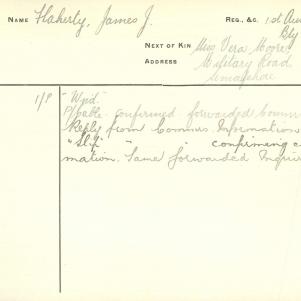 NAME Flaherty, James J. REG., &C. 1st Aus
Bty
NEXT OF KIN Miss Vera Moore
ADDRESS Military Road
Semaphore
1/P "Wnd."
P/Cable confirmed forwarded Comm
Reply from Commrs. Information
"Slip" " confirming
mation. Same forwarded Inquir